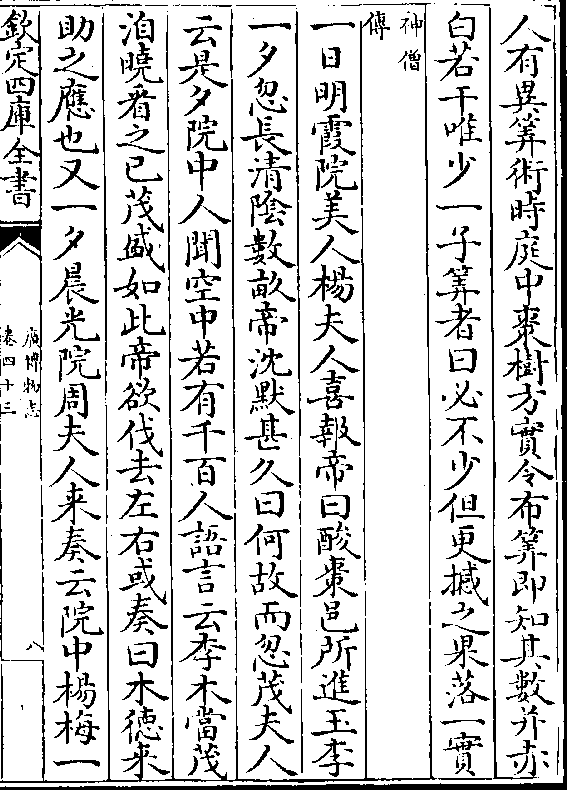 人有異筭術時庭中棗樹方實令布筭即知其數并赤
白若干唯少一子筭者曰必不少但更撼之果落一實
神僧
傳
一日明霞院美人楊夫人喜報帝曰酸棗邑所進玉李
一夕忽長清陰數畝帝沈默甚久曰何故而忽茂夫人
云是夕院中人聞空中若有千百人語言云李木當茂
洎曉看之已茂盛如此帝欲伐去左右或奏曰木德来
助之應也又一夕晨光院周夫人来奏云院中楊梅一
欽定四庫全書
廣博物志
卷四十三
八